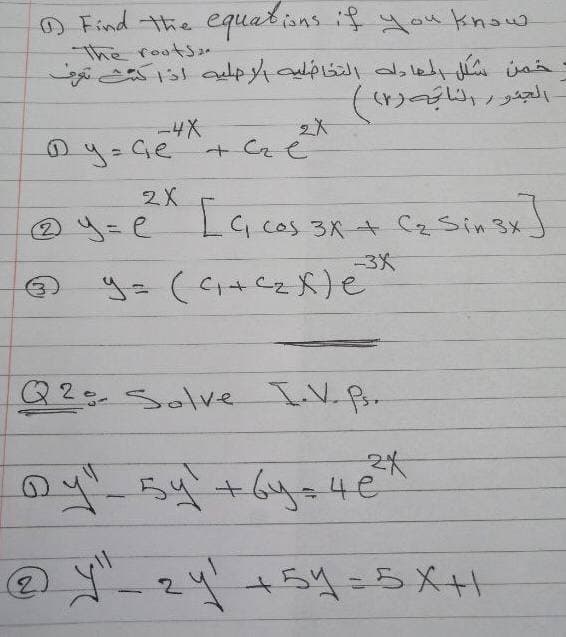 ① Find the equations if you know
The roots:-
خمن شكل المعادله التفاضليه الاصليه اذا كنت تعرف
الجذور الناتجه (r))
① y = C₁e^-4X + C₂ e^2X
② y = e^2X [C₁ cos 3X + C₂ Sin 3X]
③ y = (C₁ + C₂ X) e^-3X
Q2:- Solve I.V.Ps.
① y'' - 5y' + 6y = 4e^2X
② y'' - 2y' + 5y = 5X + 1